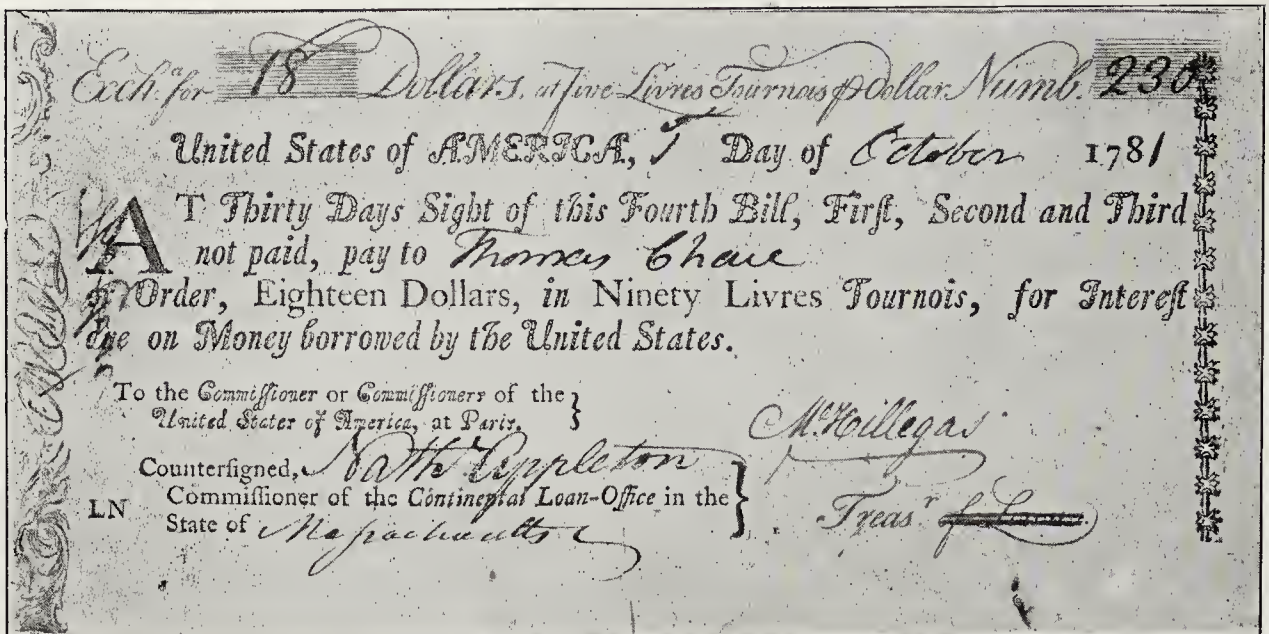 Exch.ᵃ for 18 Dollars, at Five Livres Tournois ⅌ dollar. Numb. 230
United States of AMERICA, 5 Day of October 1781
AT Thirty Days Sight of this Fourth Bill, Firſt, Second and Third
not paid, pay to Thomas Chase
or Order, Eighteen Dollars, in Ninety Livres Tournois, for Intereſt
due on Money borrowed by the United States.
To the Commiſſioner or Commiſſioners of the
United States of America, at Paris.
M. Hillegas
Counterſigned, Nathˡ Appleton
Commiſſioner of the Continental Loan-Office in the
LN
State of Massachusetts
Treasʳ